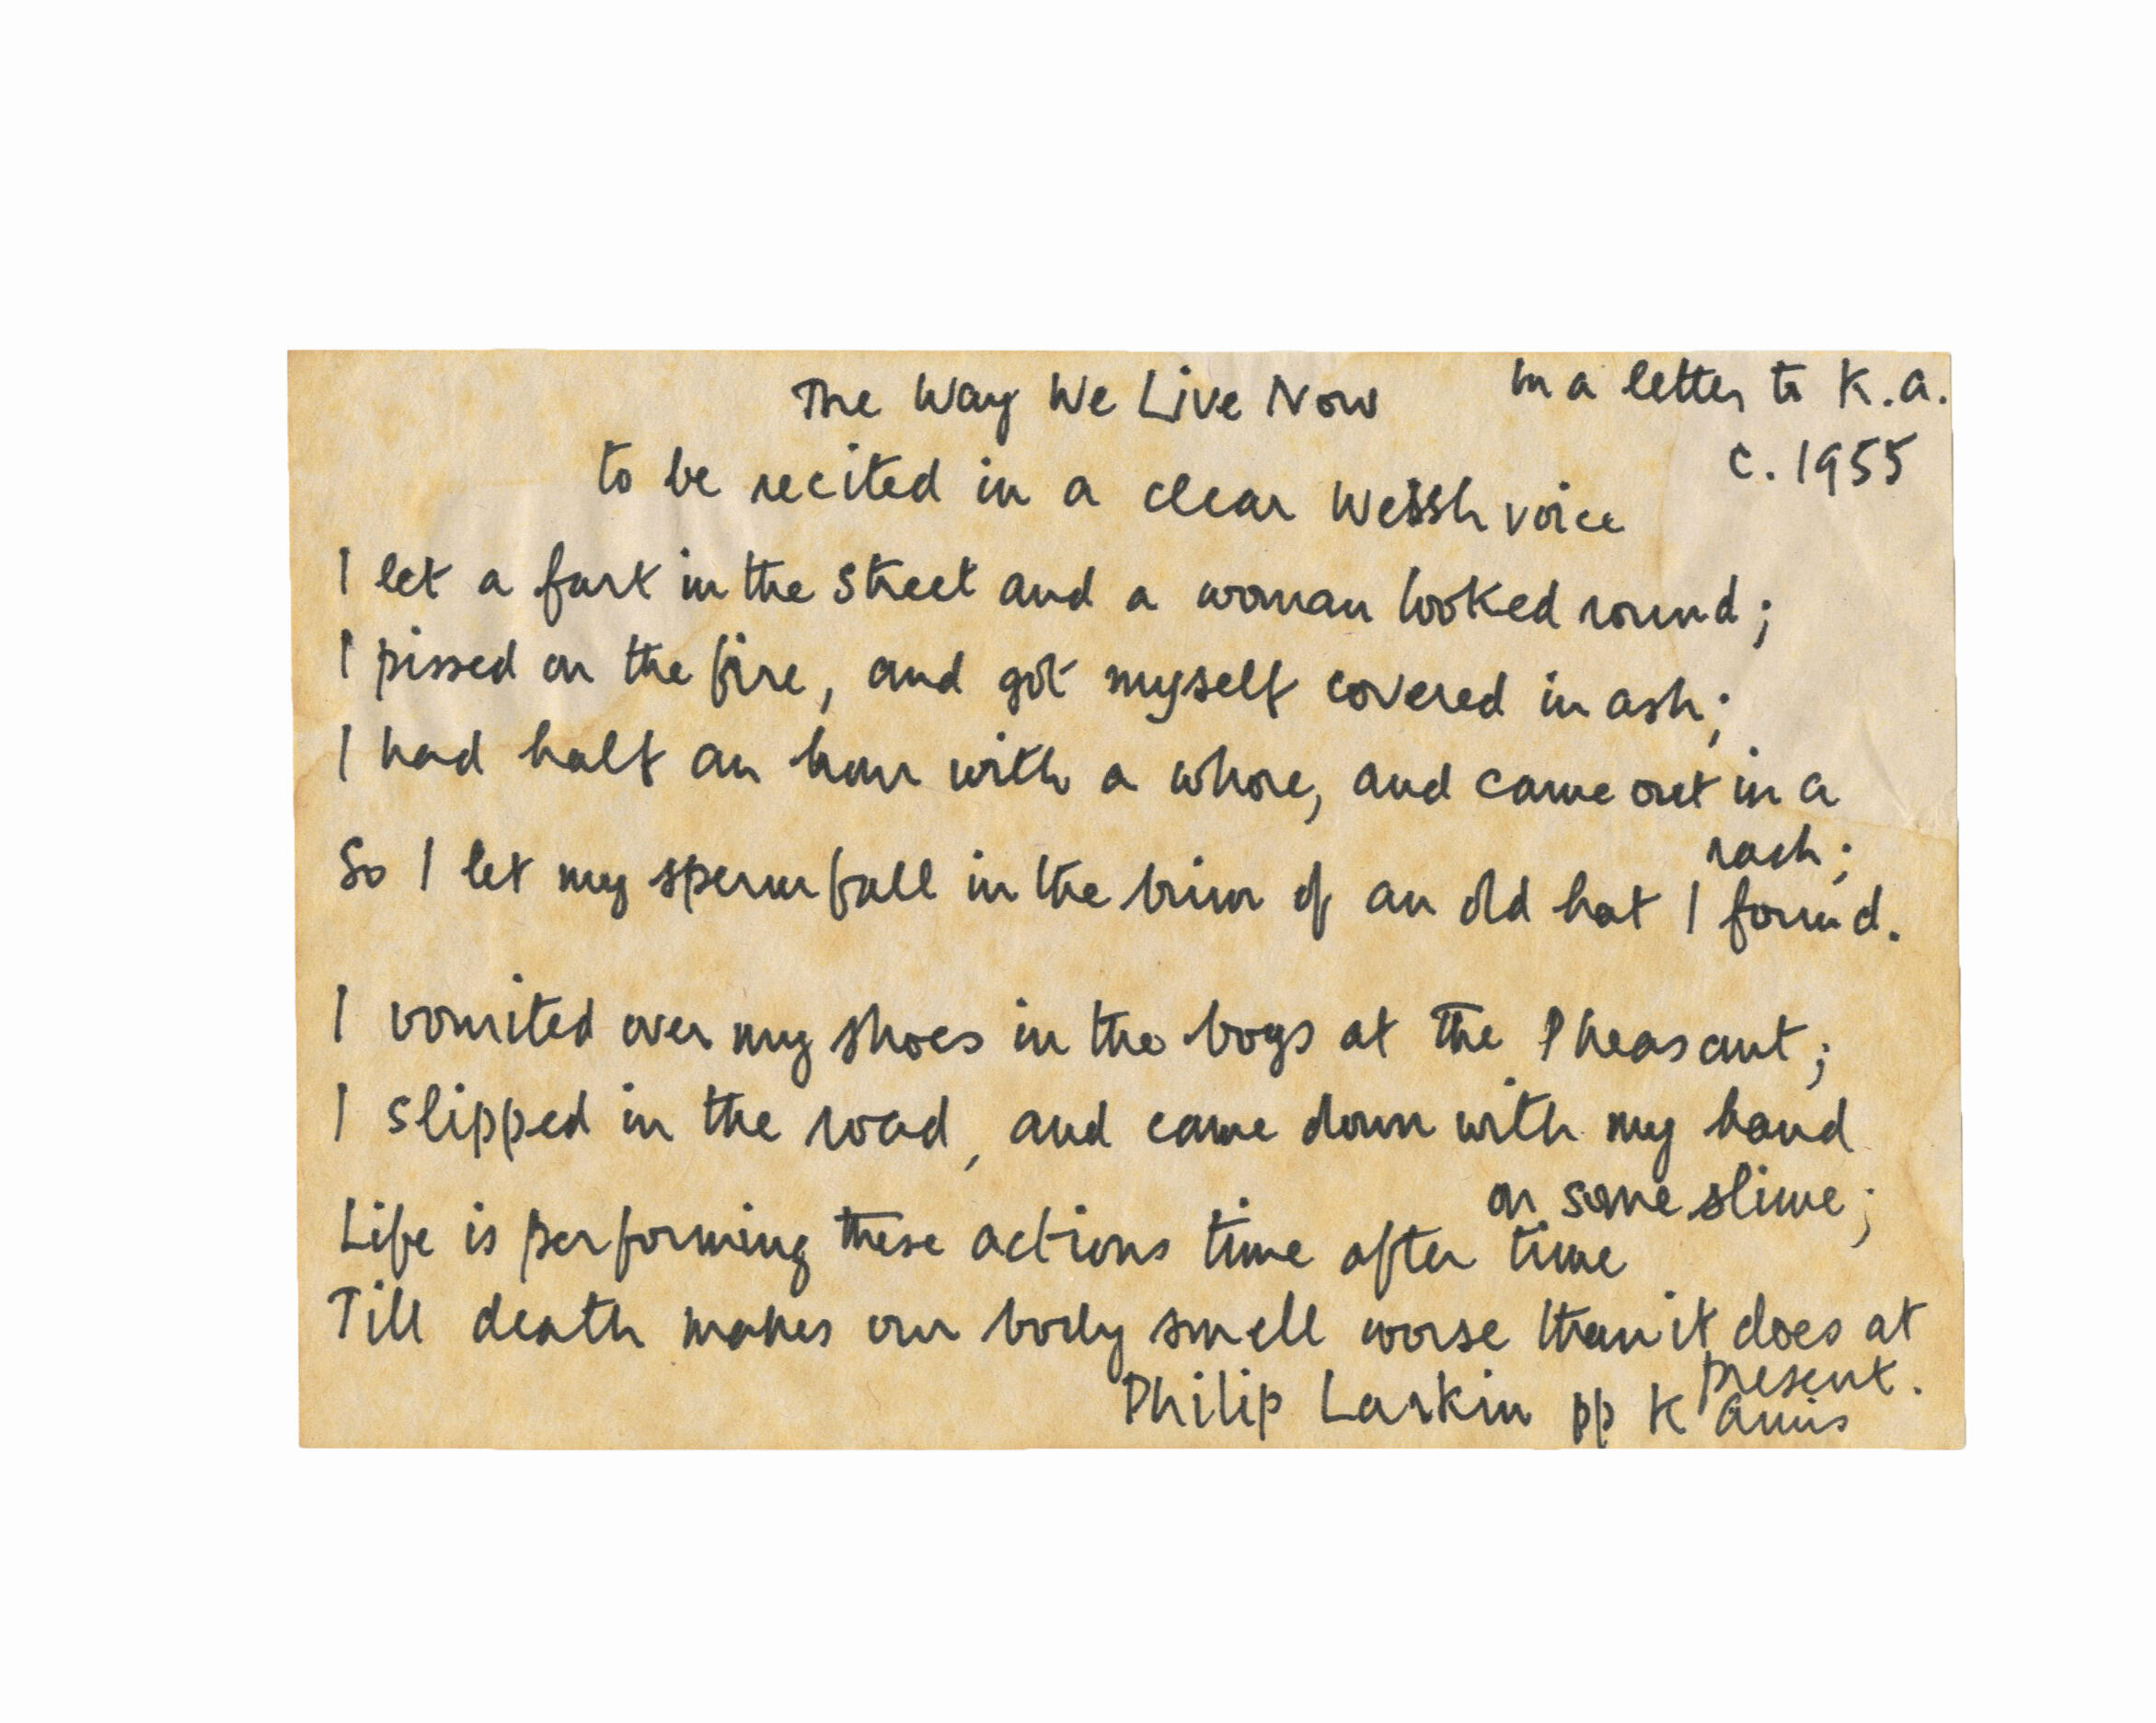 The Way We Live Now
In a letter to K.A.
c. 1955
to be recited in a clear Welssh voice
I let a fart in the street and a woman looked round;
I pissed on the fire, and got myself covered in ash;
I had half an hour with a whore, and came out in a
rash;
So I let my sperm fall in the brim of an old hat I found.
I vomited over my shoes in the bogs at the Pheasant;
I slipped in the road, and came down with my hand
on some slime;
Life is performing these actions time after time
Till death makes our body smell worse than it does at
present.
Philip Larkin pp K Amis